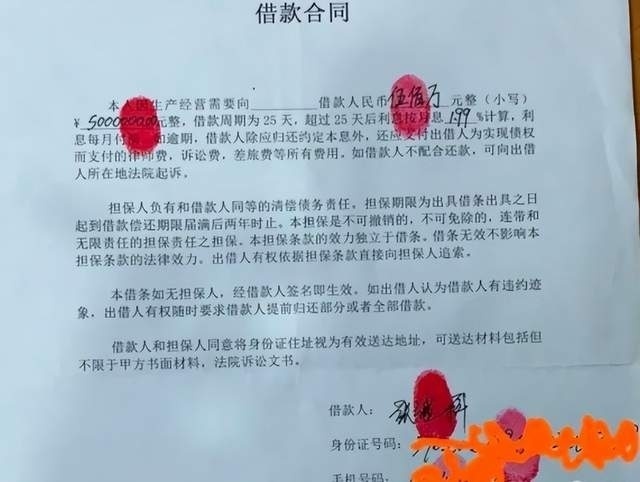 借款合同
本人因生产经营需要向________借款人民币伍佰万元整（小写）
￥5000000.00元整，借款周期为25天，超过25天后利息按月息1.99%计算，利
息每月付清。如逾期，借款人除应归还约定本息外，还应支付出借人为实现债权
而支付的律师费，诉讼费，差旅费等所有费用。如借款人不配合还款，可向出借
人所在地法院起诉。
担保人负有和借款人同等的清偿债务责任。担保期限为出具借条出具之日
起到借款偿还期限届满后两年时止。本担保是不可撤销的，不可免除的，连带和
无限责任的担保责任之担保。本担保条款的效力独立于借条。借条无效不影响本
担保条款的法律效力。出借人有权依据担保条款直接向担保人追索。
本借条如无担保人，经借款人签名即生效。如出借人认为借款人有违约迹
象，出借人有权随时要求借款人提前归还部分或者全部借款。
借款人和担保人同意将身份证住址视为有效送达地址，可送达材料包括但
不限于甲方书面材料，法院诉讼文书。
借款人：张继科
身份证号码：
手机号码：